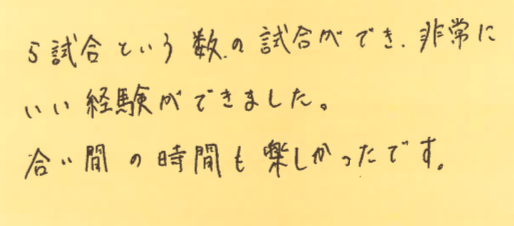 5試合という数の試合ができ、非常に
いい経験ができました。
合い間の時間も楽しかったです。